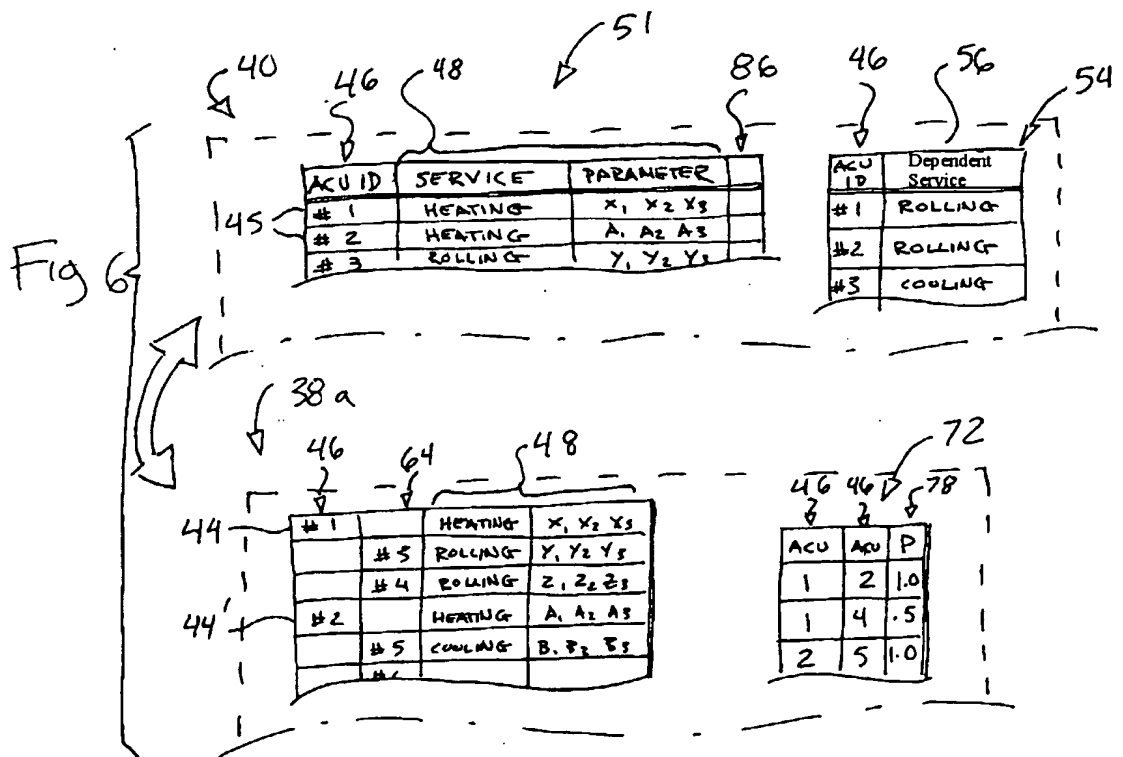 51
40 46 48 86 46 56 54
ACU ID SERVICE PARAMETER
# 1 HEATING X1 X2 X3
# 2 HEATING A1 A2 A3
# 3 ROLLING Y1 Y2 Y3
45
ACU ID Dependent Service
#1 ROLLING
#2 ROLLING
#3 COOLING
Fig 6
38a
46 64 48
44
#1 HEATING X1 X2 X3
#3 ROLLING Y1 Y2 Y3
#4 ROLLING Z1 Z2 Z3
44'
#2 HEATING A1 A2 A3
#5 COOLING B1 B2 B3
72
46 46 78
ACU ACU P
1 2 1.0
1 4 .5
2 5 1.0